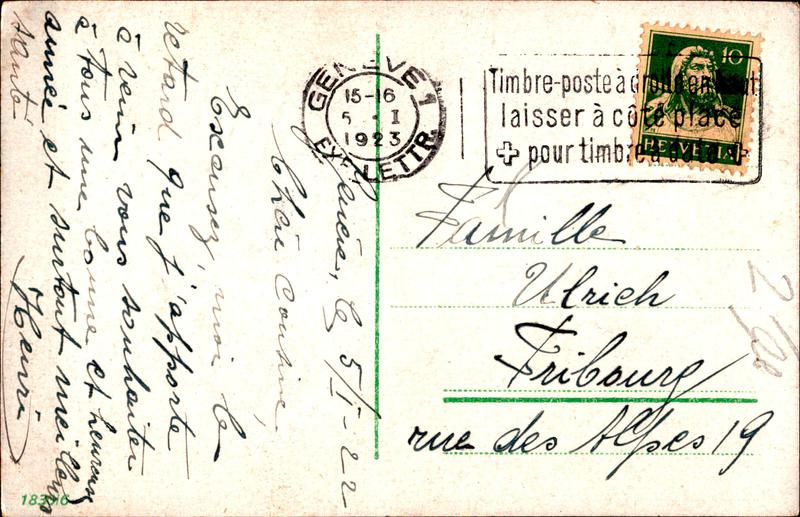 Genève, le 5/I-22
Chère Cousine,
Excusez, moi le
retard que j'apporte
à venir vous souhaiter
à tous une bonne et heureuse
année et surtout meilleure
santé
Henri
GENÈVE 1
15-16
5.I
1923
EXP. LETTR.
Timbre-poste à droite en haut
laisser à côté place
pour timbre à date
10
HELVETIA
Famille
Ulrich
Fribourg
rue des Alpes 19